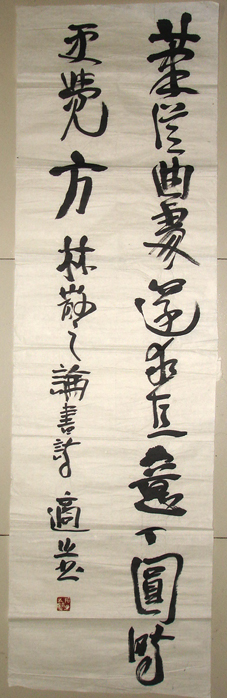 筆從曲處還求直意下圓時
更覺方 林散之論書詩 適